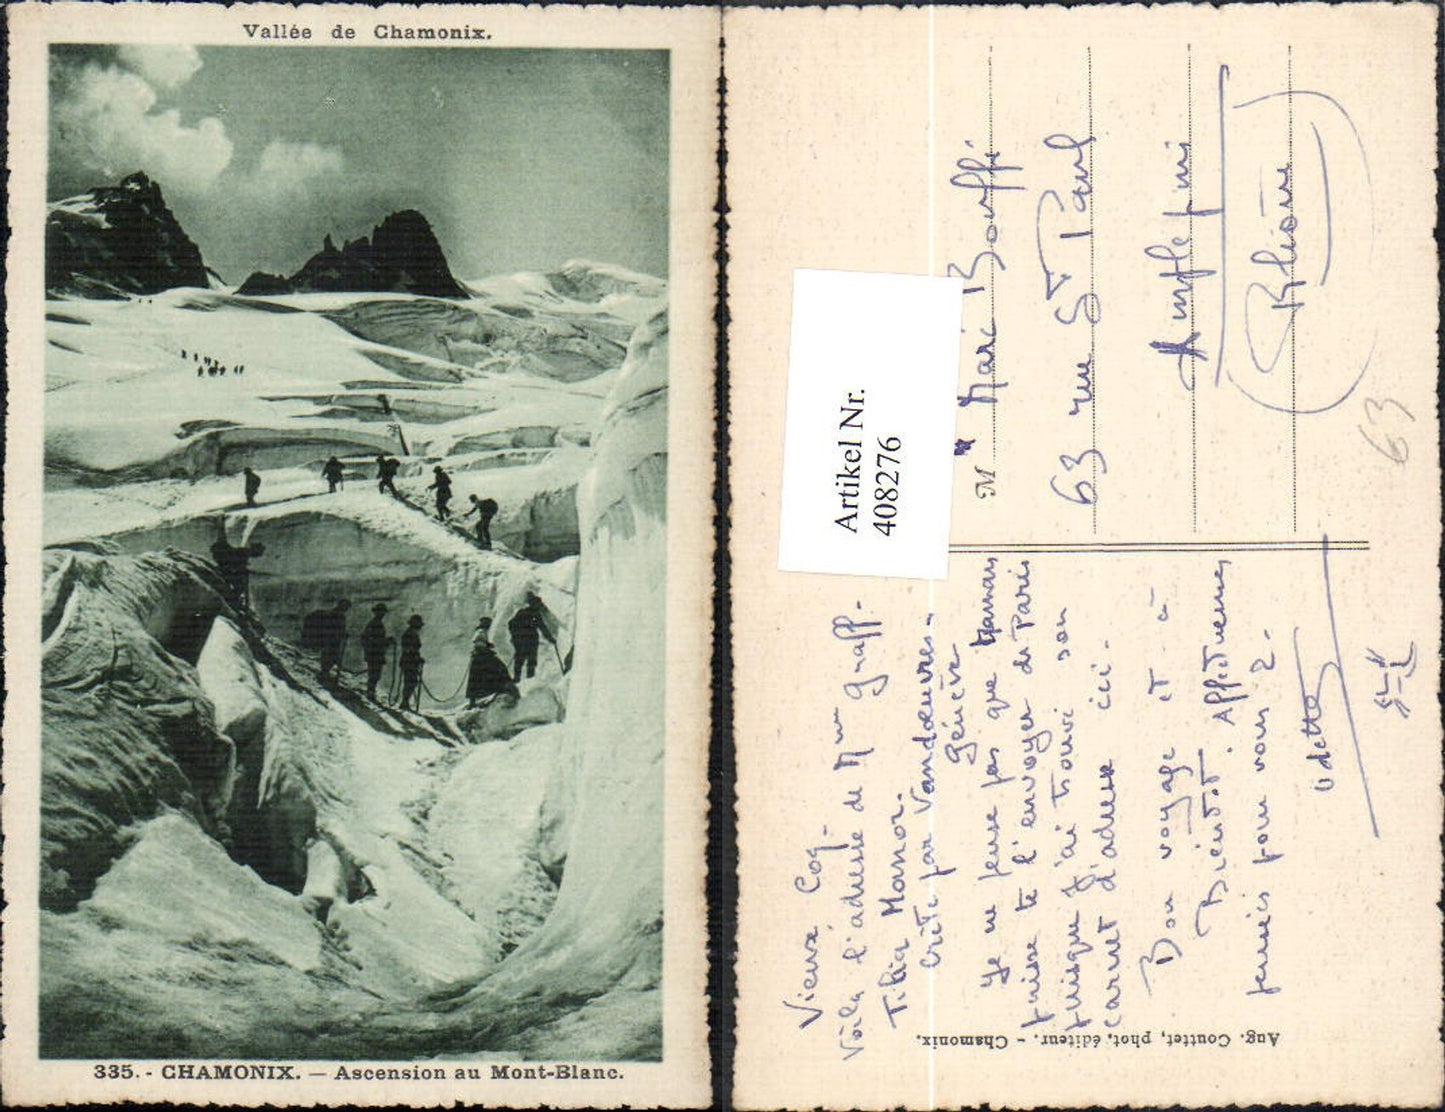 Vallée de Chamonix.
335. - CHAMONIX. — Ascension au Mont-Blanc.
Vieux Coq-
Voila l'adresse de Mme Graff-
Tibia Manor.
Crête par Vandœuvres -
Genève
Je ne pense pas que Maman
puisse te l'envoyer de Paris
puisque j'ai trouvé son
carnet d'adresse ici -
Bon voyage et à
Bientôt. Affectueuses
pensées pour vous 2 -
Odette
Aug. Couttet, phot, éditeur. - Chamonix.
Artikel Nr.
408276
M Marc Bouffi
63 rue St Paul
Amplepuis
(Rhône)
63